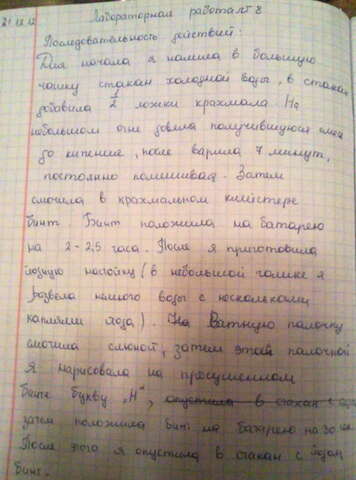 21.12.12 Лабораторная работа №8
Последовательность действий:
Для начала я налила в большую
чашку стакан холодной воды, в стакан
добавила 1/2 ложки крахмала. На
небольшом огне довела получившуюся смесь
до кипение, после варила 7 минут,
постоянно помешивая. Затем
смочила в крахмальном клейстере
бинт. Бинт положила на батарею
на 2-2,5 часа. После я приготовила
йодную настойку (в небольшой чашке я
развела немного воды с несколькими
каплями йода). На Ватную палочку
смочила слюной, затем этой палочкой
Я нарисовала на просушенном
бинте букву „Н", опустила в стакан с
затем положила бинт на батарею на 30
После этого я опустила в стакан с йодом
бинт.